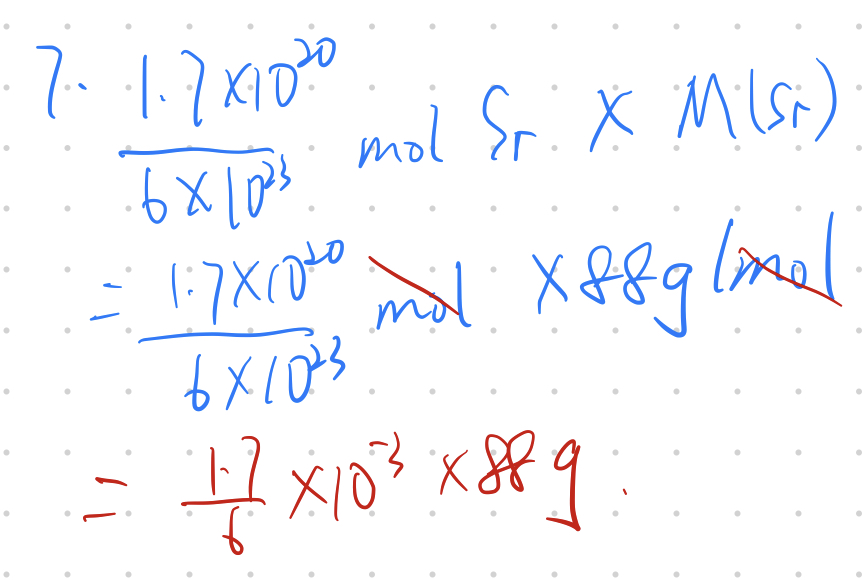 7. 1.7×10²⁰/6×10²³ mol Sr × M(Sr)
= 1.7×10²⁰/6×10²³ mol ×88g/mol
= 1.7/6 ×10⁻³ ×88g.